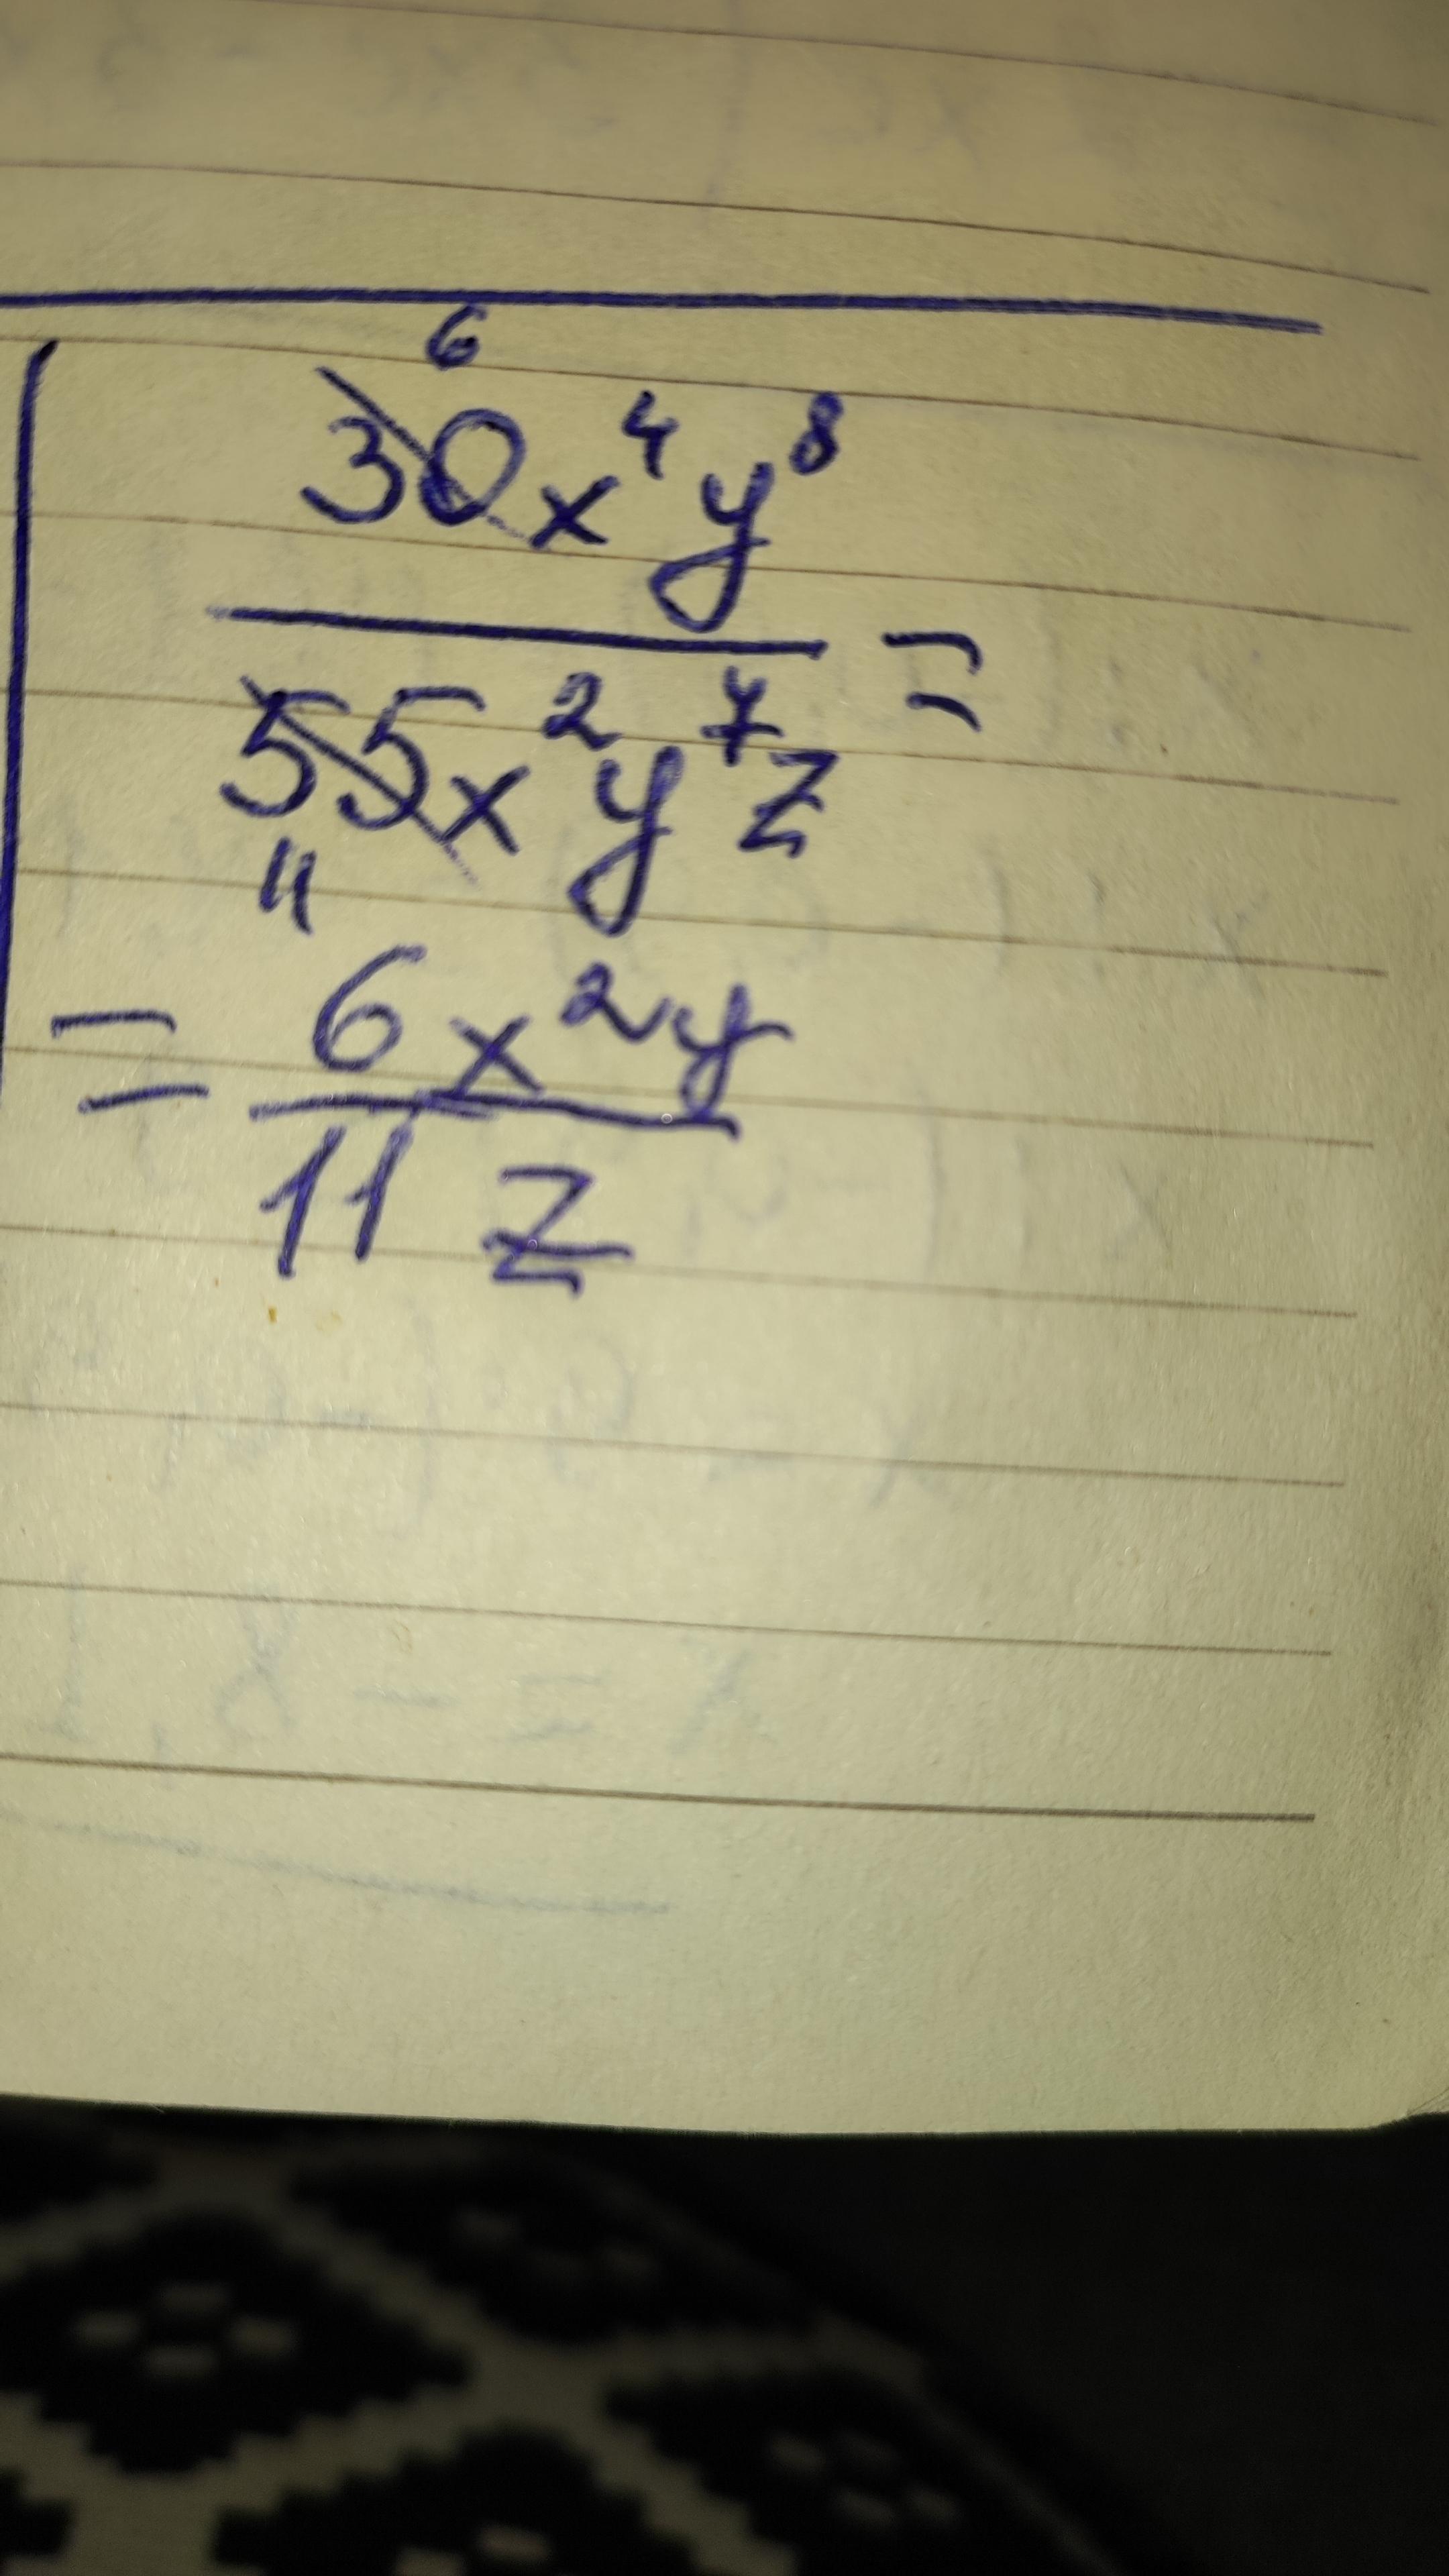 6
30x⁴y⁸
55x²y⁷z =
11
= 6x²y
11 z